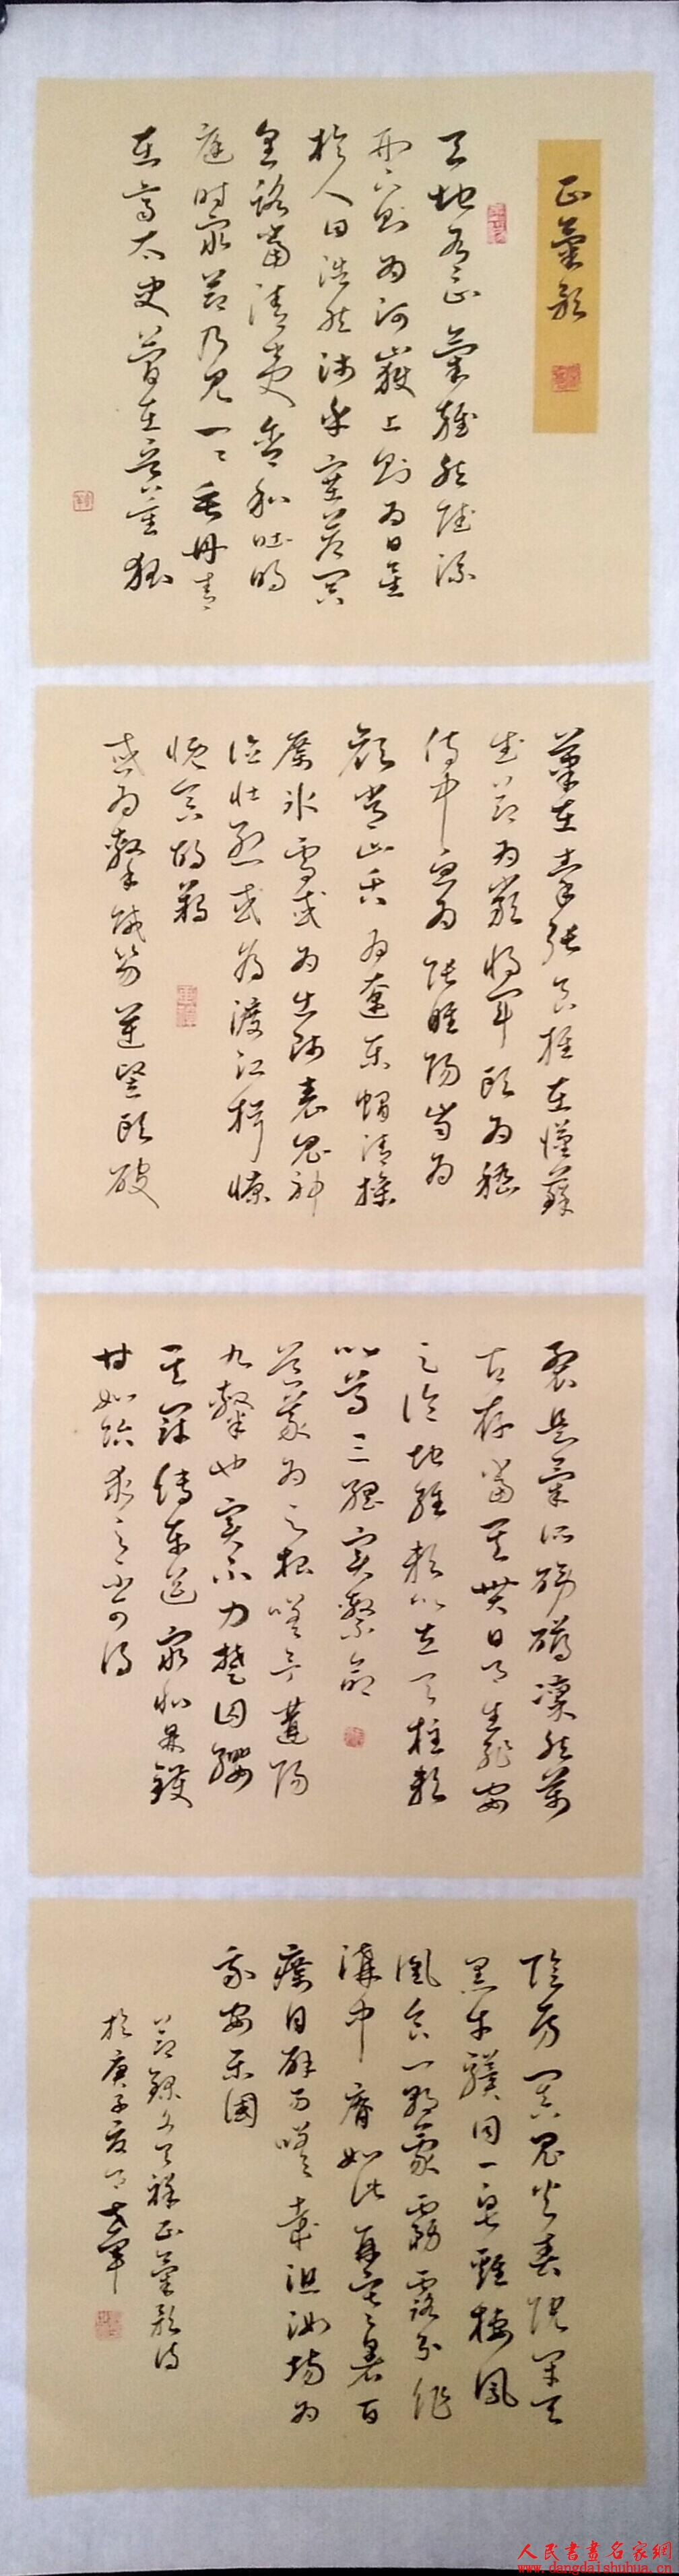 正氣歌
天地有正氣雜然賦流
形下則為河嶽上則為日星
於人曰浩然沛乎塞蒼冥
皇路當清夷含和吐明
庭時窮節乃見一一垂丹青
在齊太史簡在晉董狐
筆在秦張良椎在漢蘇
武節為嚴將軍頭為嵇
侍中血為張睢陽齒為
顏常山舌或為遼東帽清操
厲冰雪或為出師表鬼神
泣壯烈或為渡江楫慷
慨吞胡羯
或為擊賊笏逆豎頭破
裂是氣所磅礴凜然萬
古存當其貫日月生死安
足論地維賴以立天柱賴
以尊三綱實繫命
道義為之根嗟予遘陽
九隸也實不力楚囚纓
其冠傳車送窮北鼎鑊
甘如飴求之不可得
陰房闃鬼火春院閟天
黑牛驥同一皂雞棲鳳
凰食一朝蒙霧露分作
溝中瘠如此再寒暑百
癘自辟易嗟哉沮洳場為
我安樂國
節錄文天祥正氣歌詩
於庚子夏月
人民書畫名家網
www.dangdaishuhua.cn